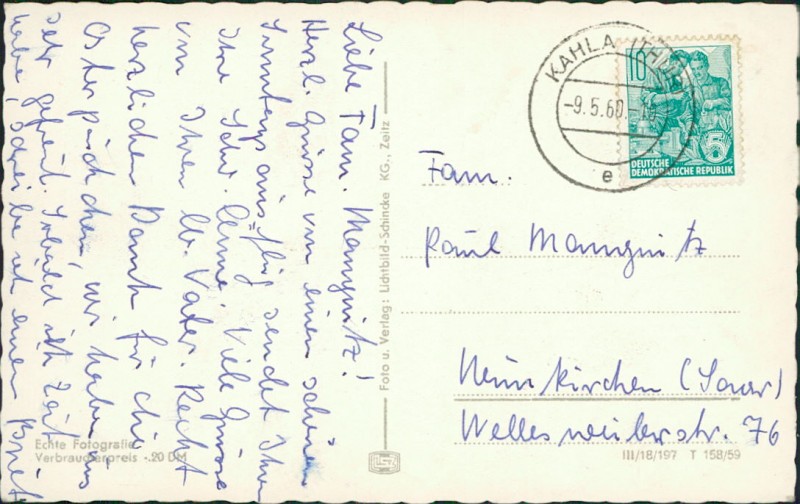 Liebe Fam. Mangnitz!
Herzl. Grüsse von einem schönen
Sonntagsausflug sendet Ihnen
Ihre Schw. Anne. Viele Grüsse
von Ihrem lb. Vater. Recht
herzlichen Dank für die
Osterpäckchen, wir haben uns
sehr gefreut. Sobald ich Zeit
habe, schreibe ich einen Brief
Echte Fotografie
Verbraucherpreis -.20 DM
Foto u. Verlag: Lichtbild-Schincke KG., Zeitz
KAHLA (THÜR)
-9.5.60.
e
10
5
DEUTSCHE
DEMOKRATISCHE REPUBLIK
Fam.
Paul Mangnitz
Neunkirchen (Saar)
Wellesweilerstr. 76
III/18/197 T 158/59